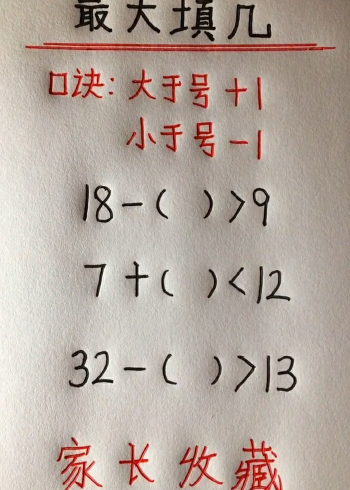 最大填几
口诀：大于号+1
小于号-1
18-( )>9
7+( )<12
32-( )>13
家长收藏